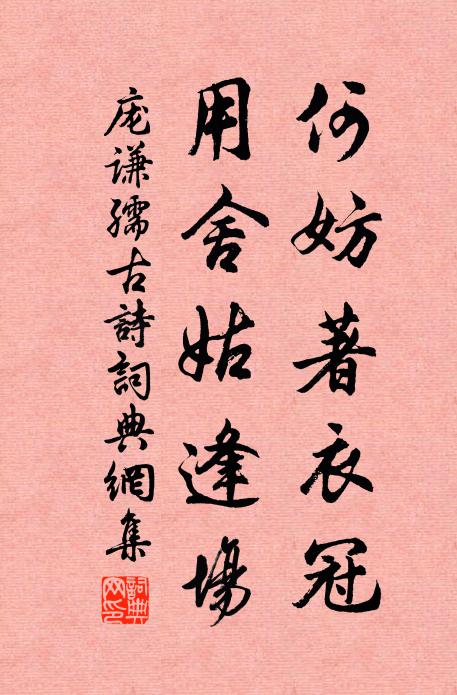 何妨著衣冠
用舍姑逢場
庞谦孺古詩詞典網集
詞典網印